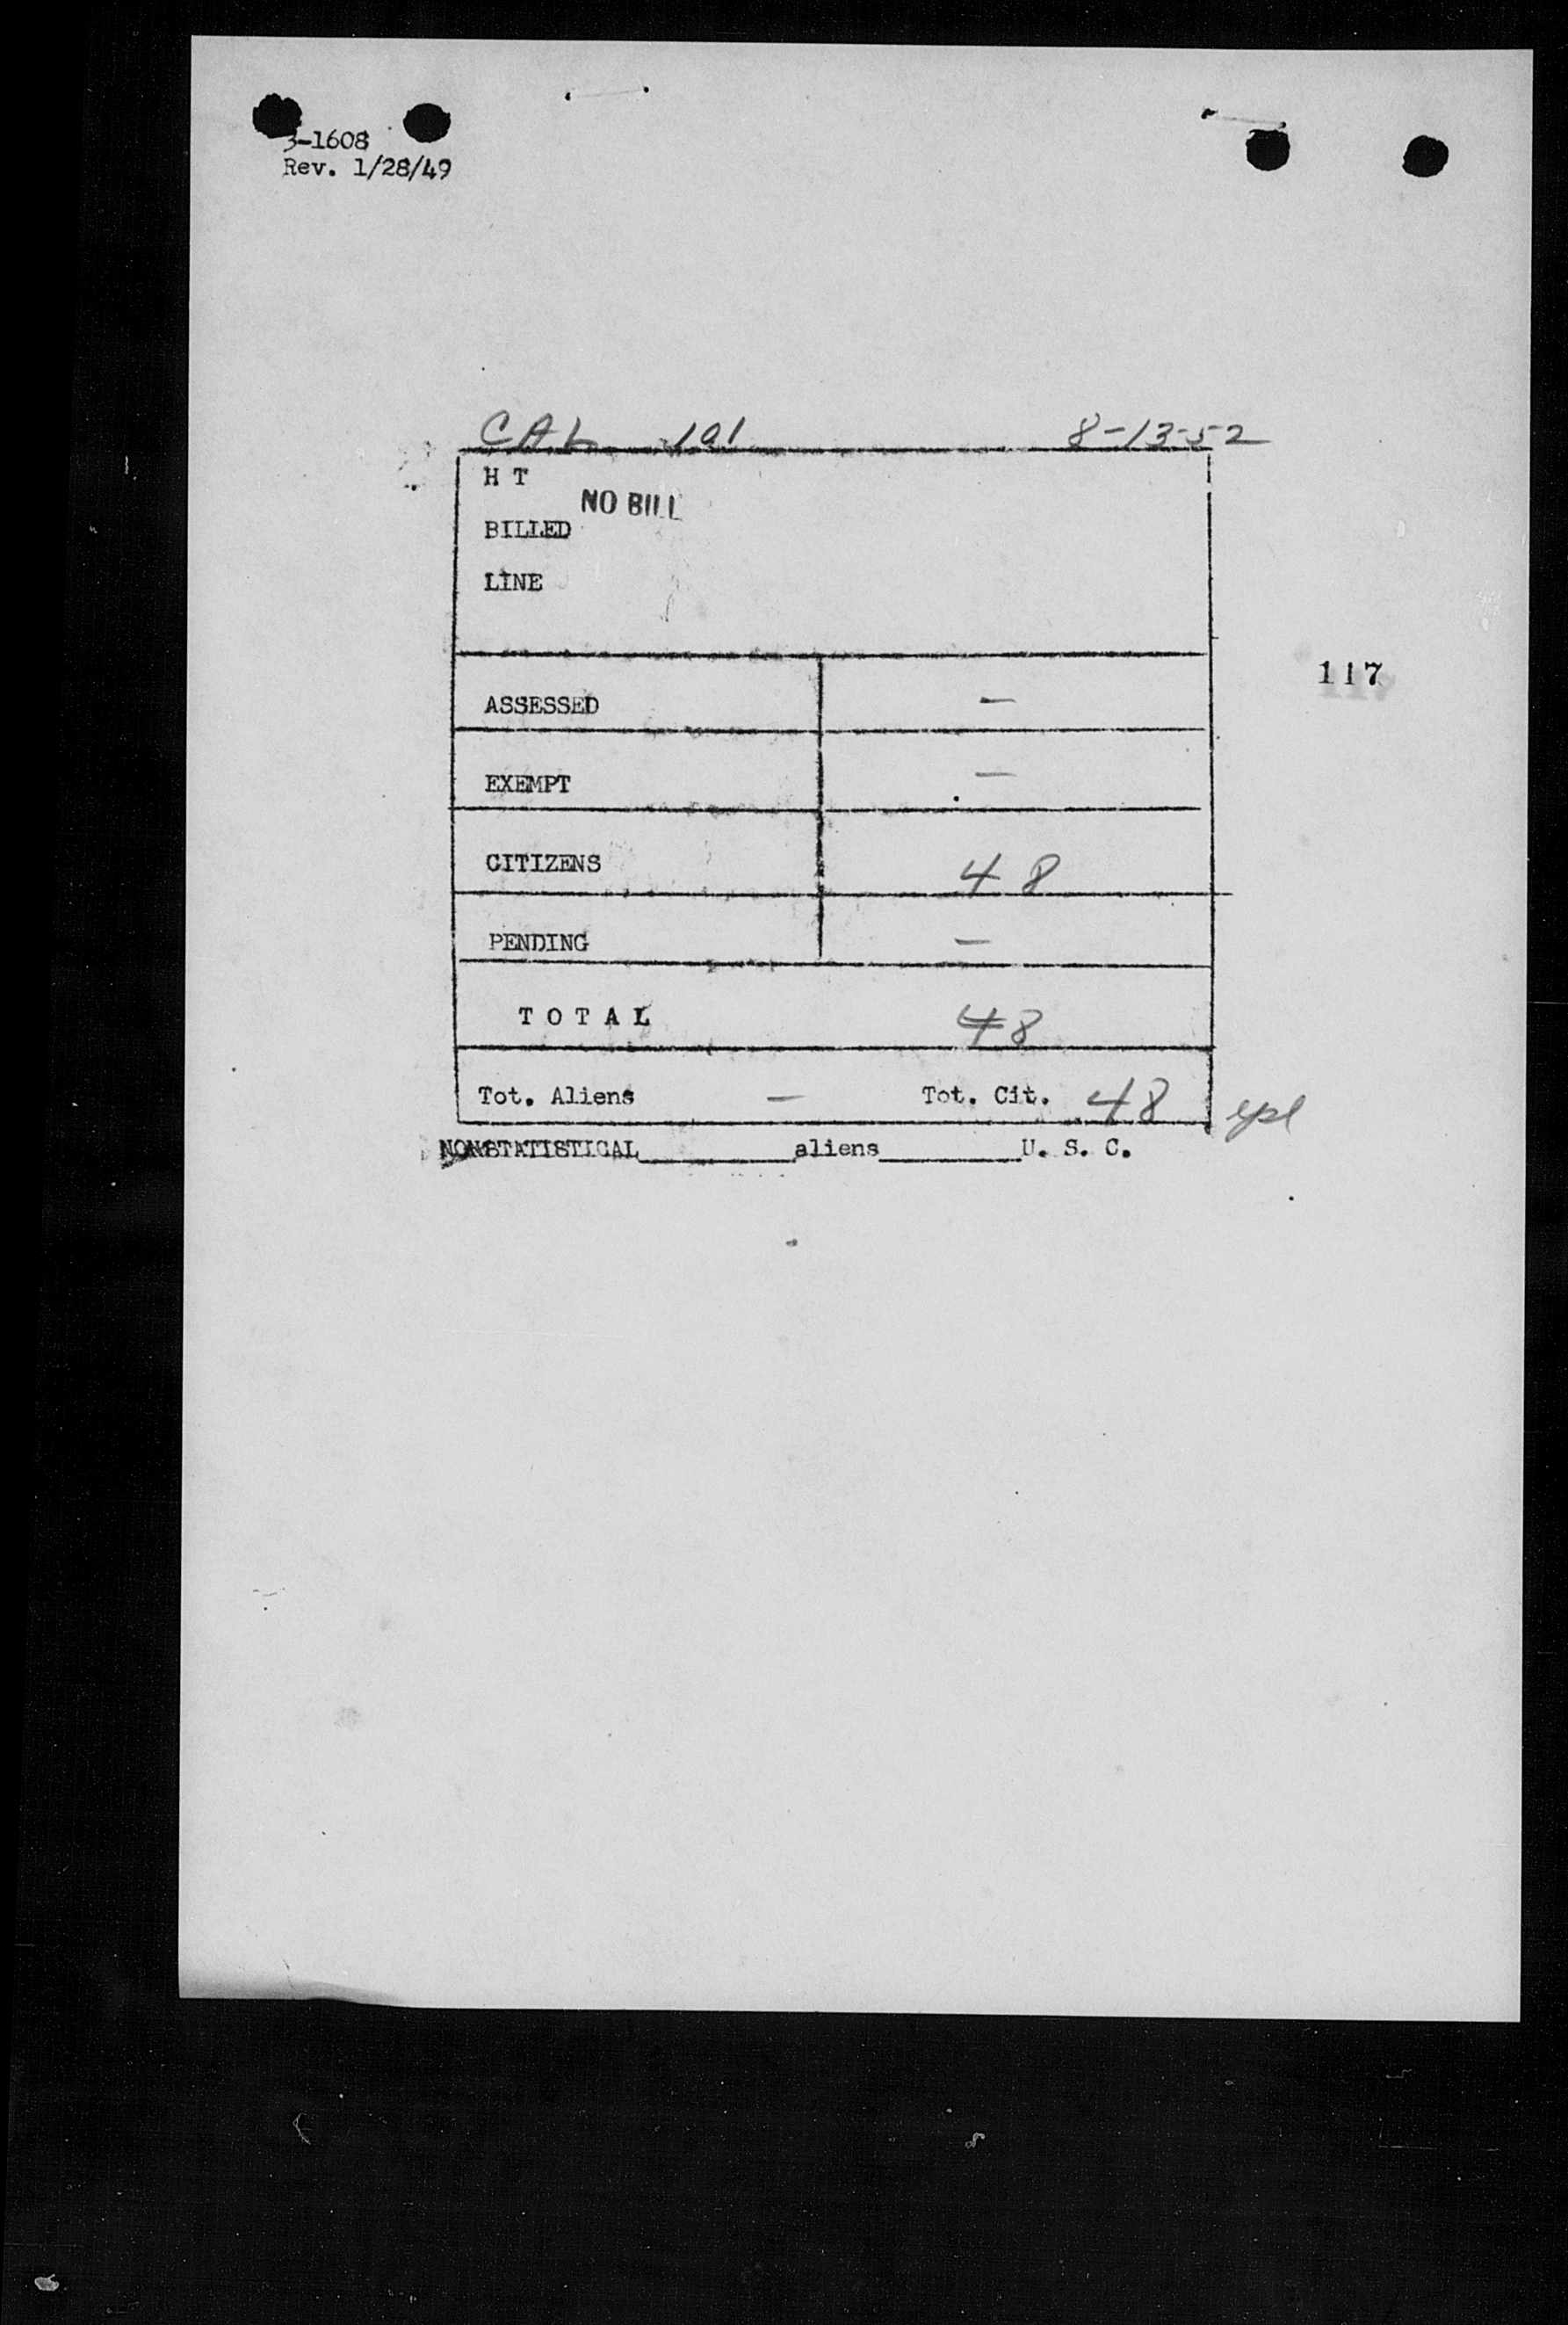 3-1608
Rev. 1/28/49
CAL 101 8-13-52
H T
NO BILL
BILLED
LINE
117
ASSESSED —
EXEMPT —
CITIZENS 48
PENDING —
T O T A L 48
Tot. Aliens — Tot. Cit. 48
NONSTATISTICAL__________aliens__________U. S. C.